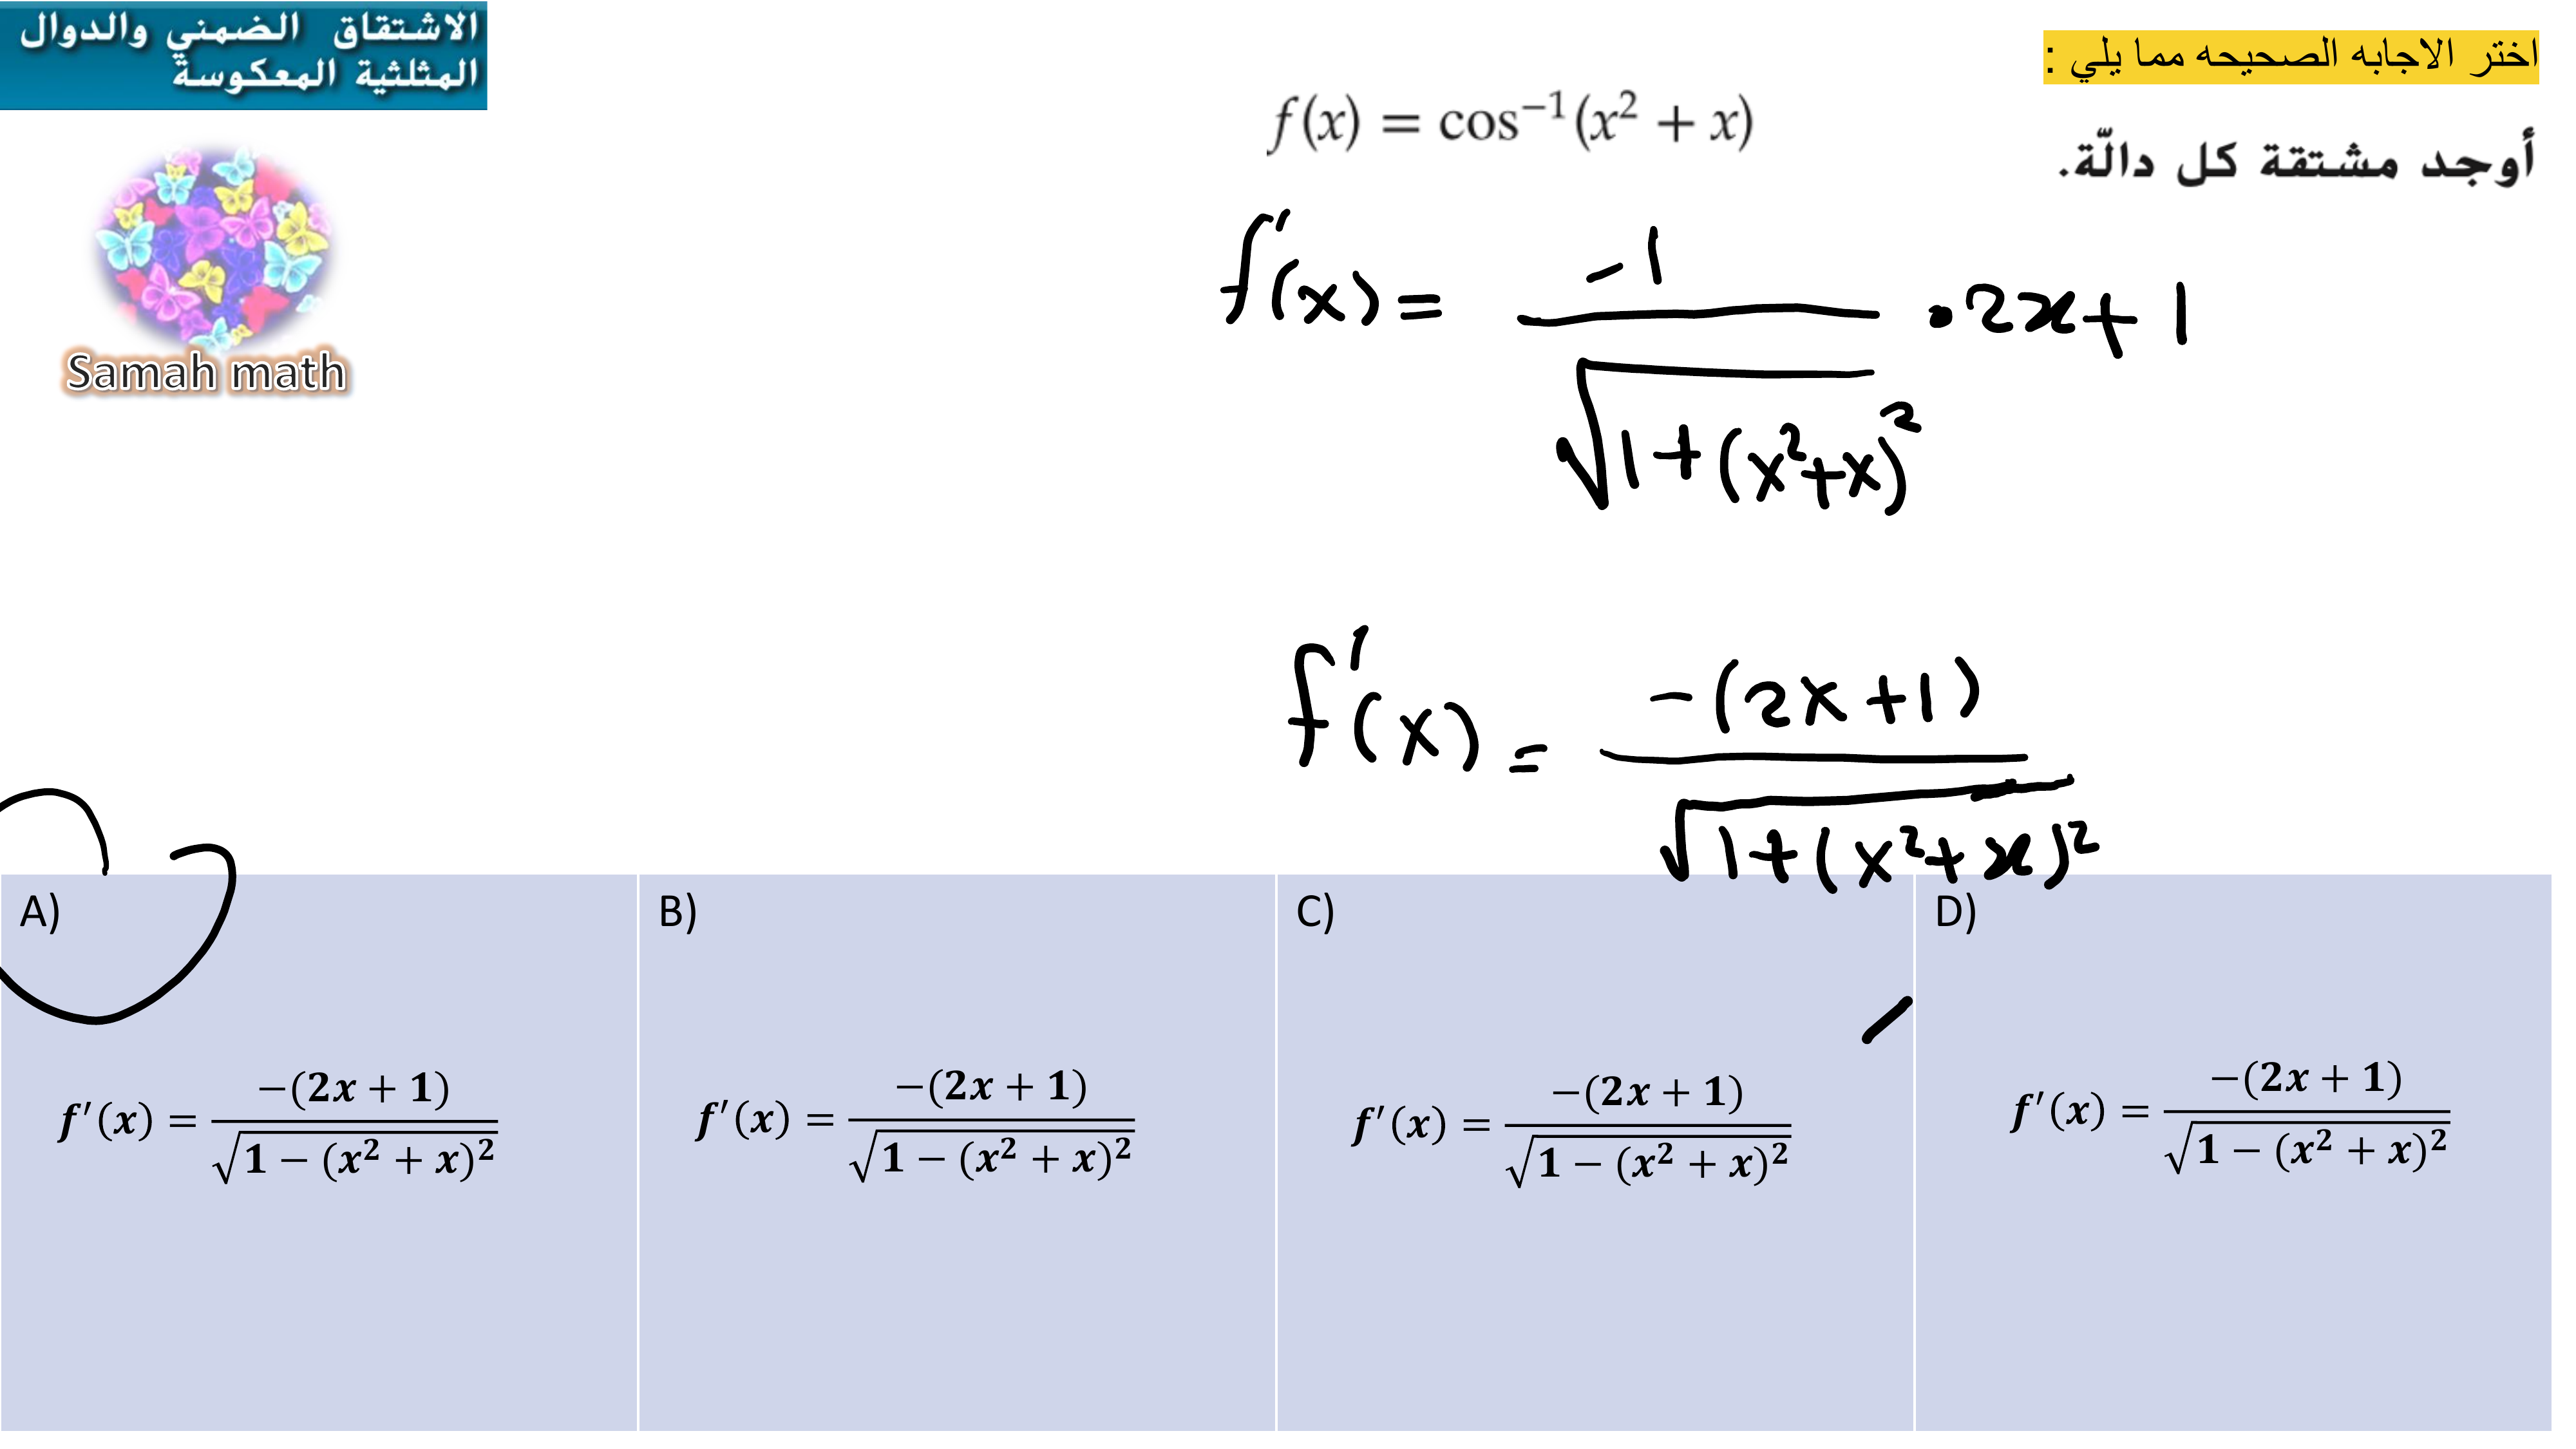 الاشتقاق الضمني والدوال
المثلثية المعكوسة
اختر الاجابه الصحيحه مما يلي :
أوجد مشتقة كل دالّة.
f(x) = cos⁻¹(x² + x)
Samah math
f'(x) = -1 / √(1+(x²+x)²) • 2x+1
f'(x) = -(2x+1) / √(1+(x²+x)²)
A)
f′(x) = −(2x + 1) / √(1 − (x² + x)²)
B)
f′(x) = −(2x + 1) / √(1 − (x² + x)²)
C)
f′(x) = −(2x + 1) / √(1 − (x² + x)²)
D)
f′(x) = −(2x + 1) / √(1 − (x² + x)²)